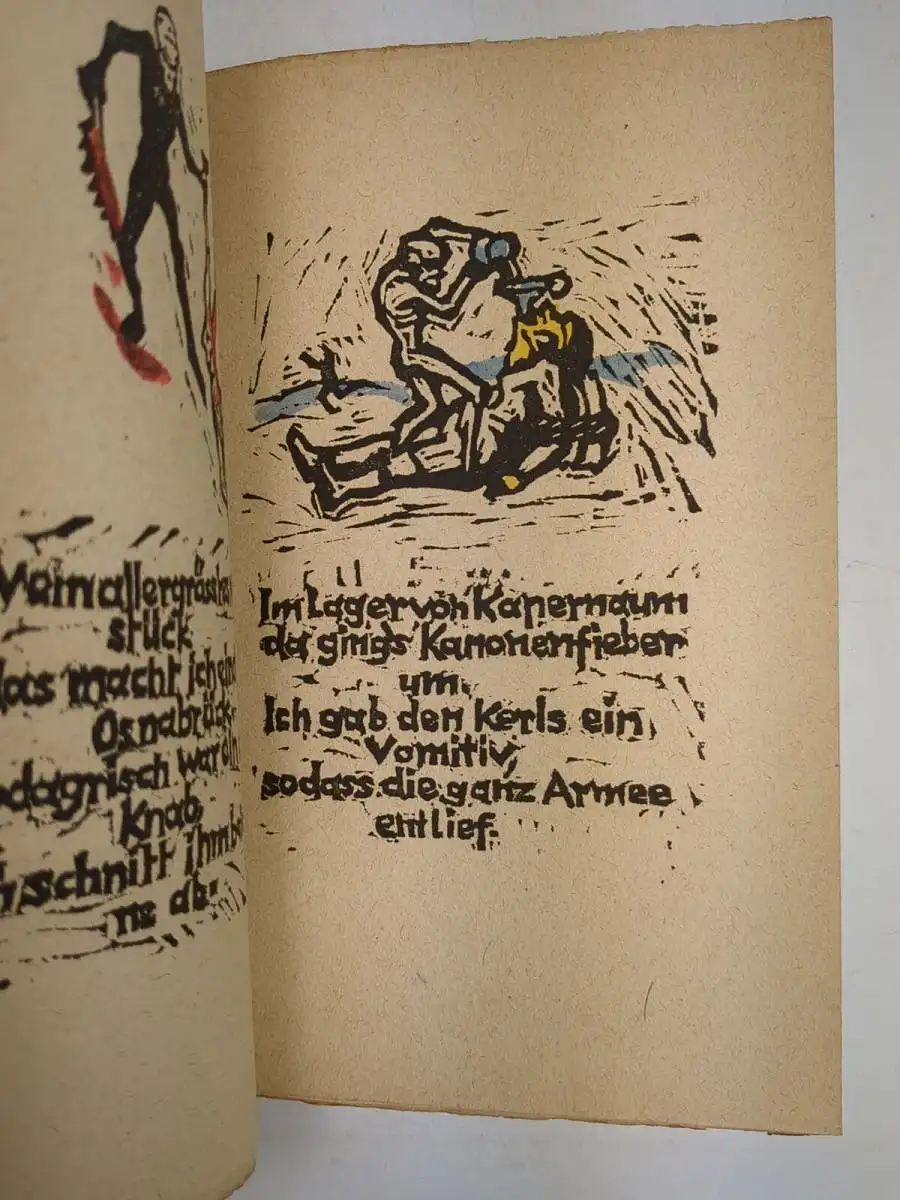 Mein allergrösstes
stück
das macht ich
Osnabrück
war
Knab,
schnitt ihm
ne ab.
Im Lager von Kapernaum
da ging's Kanonenfieber
um.
Ich gab den Kerls ein
Vomitiv,
sodass die ganz Armee
entlief.